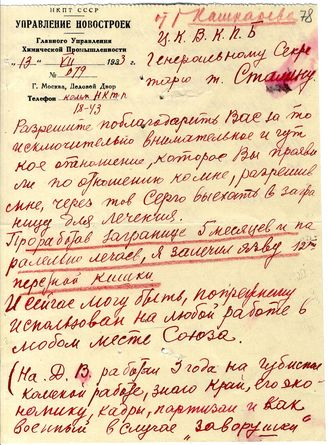 НКТП СССР
УПРАВЛЕНИЕ НОВОСТРОЕК
Главного Управления
Химической Промышленности
"13" VII 1933 г.
№ 079
Г. Москва, Деловой Двор
Телефон комм. НКТП
18-43
т. Кашкадова
78
Ц.К.В.К.П.Б
Генеральному Секре
тарю т. Сталину.
Разрешите поблагодарить Вас за то
исключительно внимательное и чут
кое отношение, которое Вы прояви
ли по отношению ко мне, разрешив
мне, через тов Серго выехать в загра
ницу для лечения.
Проработав заграницей 5 месяцев и па
ралельно лечась, я залечил язву 12ти
перстной кишки
И сейчас могу быть, по прежнему
использован на любой работе в
любом месте Союза.
(На Д.В. работал 9 года на губиспол
комской работе, знаю край, его эко-
номику, кадры, партизан и как
военный в случае "заварушки"